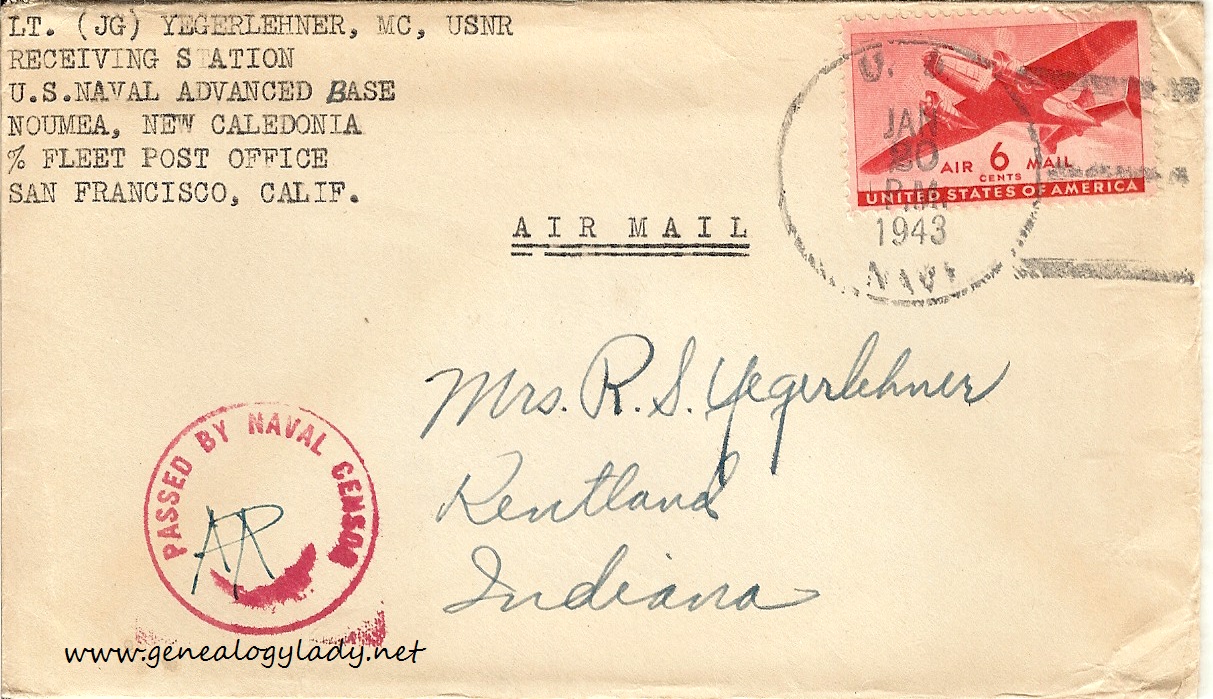 LT. (JG) YEGERLEHNER, MC, USNR
RECEIVING STATION
U.S.NAVAL ADVANCED BASE
NOUMEA, NEW CALEDONIA
% FLEET POST OFFICE
SAN FRANCISCO, CALIF.
AIR MAIL
U. S.
JAN
20
P.M.
1943
NAVY
AIR 6 MAIL
CENTS
UNITED STATES OF AMERICA
Mrs. R. S. Yegerlehner
Kentland
Indiana
PASSED BY NAVAL CENSOR
AR
www.genealogylady.net